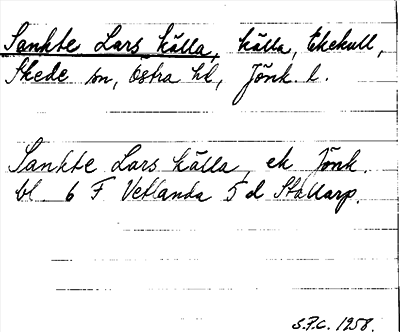 Sankte Lars källa, källa, Ekekull,
Skede sn, Östra hd, Jönk. l.
Sankte Lars källa, ek Jönk.
bl 6 F Vetlanda 5 d Stallarp.
S.F.C. 1958.